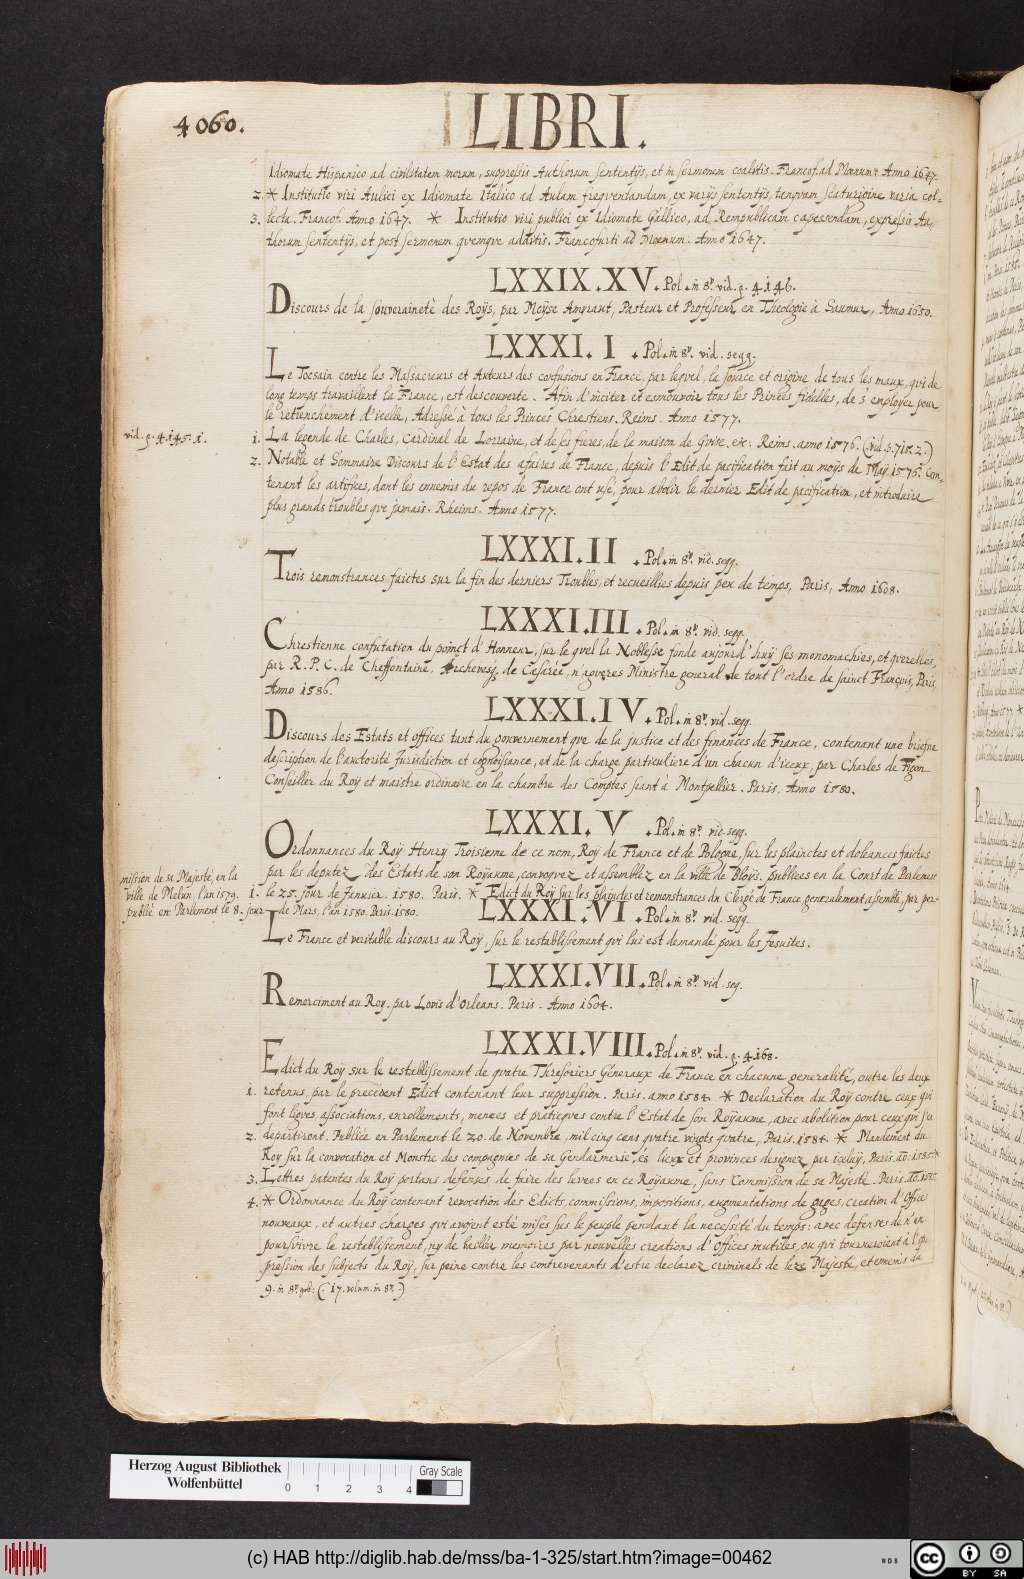 4060.
LIBRI.
Idiomate Hispanico ad civilitatem morum, suppressis Authorum sententijs, et in sermonem coalitis. Francof. ad Moenum Anno 1647.
2. * Institutio viri Aulici ex Idiomate Italico ad Aulam freqventandam, ex varijs sententijs, tanqvam scaturigine varia col-
3. lecta. Francof. Anno 1647. * Institutio viri publici ex Idiomate Gallico, ad Rempublicam capessendam, expressis Au-
thorum sententijs, et post sermonem qvemqve additis. Francofurti ad Moenum. Anno 1647.
LXXIX. XV. Pol. in 8º. vid. p. 4146.
Discours de la souveraineté des Roÿs, par Moÿse Amyraut, Pasteur et Professeur en Theologie à Saumur, Anno 1650.
LXXXI. I. Pol. in 8º. vid. seqq.
Le Tocsain contre les Massacreurs et Auteurs des confusions en France, par leqvel, la source et origine de tous les maux, qvi de
long temps travaillent la France, est descouverte. Afin d'inciter et esmouvoir tous les Princes fidelles, de s'employer pour
le retrenchement d'icelle, Adressé à tous les Princes Chrestiens. Reims. Anno 1577.
vid. p. 4145. 1.
1. La legende de Charles, Cardinal de Lorraine, et de ses freres, de la maison de Guise, etc. Reims. anno 1576. (vid. p. 715. 2.)
2. Notable et Sommaire Discours de l'Estat des afaires de France, depuis l'Edit de pacification fait au moÿs de Maÿ 1576. Con-
tenant les artifices, dont les ennemis du repos de France ont usé, pour abolir le dernier Edit de pacification, et introduire
plus grands troubles qve jamais. Rheims. Anno 1577.
LXXXI. II. Pol. in 8º. vid. seqq.
Trois remonstrances faictes sur la fin des derniers Troubles, et recueillies depuis peu de temps, Paris, Anno 1608.
LXXXI. III. Pol. in 8º. vid. seqq.
Chrestienne confutation du poinct d'Honneur, sur le qvel la Noblesse fonde aujourd'huÿ ses monomachies, et qverelles,
par R. P. C. de Cheffontaine, Archevesq. de Cesarée, n'agveres Ministre general de tout l'ordre de sainct François, Paris,
Anno 1586.
LXXXI. IV. Pol. in 8º. vid. seqq.
Discours des Estats et offices tant du gouvernement qve de la justice et des finances de France, contenant une briefve
description de l'autorité Jurisdiction et cognoissance, et de la charge particuliere d'un chacun d'iceux, par Charles de Figon
Conseiller du Roÿ et maistre ordinaire en la chambre des Comptes seant à Montpellier. Paris. Anno 1580.
LXXXI. V. Pol. in 8º. vid. seqq.
Ordonnances du Roÿ Henry Troisieme de ce nom, Roy de France et de Pologne, sur les plainctes et doleances faictes
par les deputez des Estats de son Royaume, convoqvez et assemblez en la ville de Bloÿs. publiees en la Court de Parlement
1. le 25. jour de Januier. 1580. Paris. * Edict du Roÿ sur les plaictes et remonstrances du Clergé de France generalement assemblé, par per-
mission de sa Majesté, en la
ville de Melun l'an 1579.
publié en Parlement le 8. jour de Mars, l'an 1580. Paris. 1580.
LXXXI. VI. Pol. in 8º. vid. seqq.
Le France et veritable discours au Roÿ, sur le restablissement qvi lui est demandé pour les Jesuites.
LXXXI. VII. Pol. in 8º. vid. seq.
Remerciment au Roy. par Lovis d'Orleans. Paris. Anno 1604.
LXXXI. VIII. Pol. in 8º. vid. p. 4168.
Edict du Roÿ sur le restablissement de qvatre Thresoriers Géneraux de France en chacune generalité, outre les deux
1. retenus par le precedent Edict contenant leur suppression. Paris. anno 1584. * Declaration du Roÿ contre ceux qvi
font ligves, associations, enrollements, menees et practiqves contre l'Estat de son Roÿaume, avec abolition pour ceux qvi s'en
2. departiront. Publiée en Parlement le 20. de Novembre, mil cinq cens qvatre vingts qvatre, Paris. 1584. * Mandement du
Roy sur la convocation et Monstre des compagnies de sa Gendarmerie, és lieux et provinces designez par iceluÿ, Paris. aõ. 1585. *
3. Lettres patentes du Roÿ portans defenses de faire des levees en ce Roÿaume, sans Commission de sa Majesté. Paris.
4. * Ordonnance du Roÿ contenant revocation des Edicts, commissions, impositions, augmentations de gages, creation d'Office
nouveaux, et autres charges qvi avoient esté mises sus le peuple pendant la necessité du temps: avec defenses de n'en
poursvivre le restablissement, ny de bailler memoires par nouvelles creations d'Offices inutiles, ou qvi tourneroient à l'op
pression des subjects du Roÿ, sur peine contre les contrevenants d'estre declarez criminels de leze Majesté, et ennemis du
9. in 8º. (17. volum. in 8º.)
Herzog August Bibliothek
Wolfenbüttel
0 1 2 3 4
Gray Scale
(c) HAB http://diglib.hab.de/mss/ba-1-325/start.htm?image=00462
WDB
cc BY SA